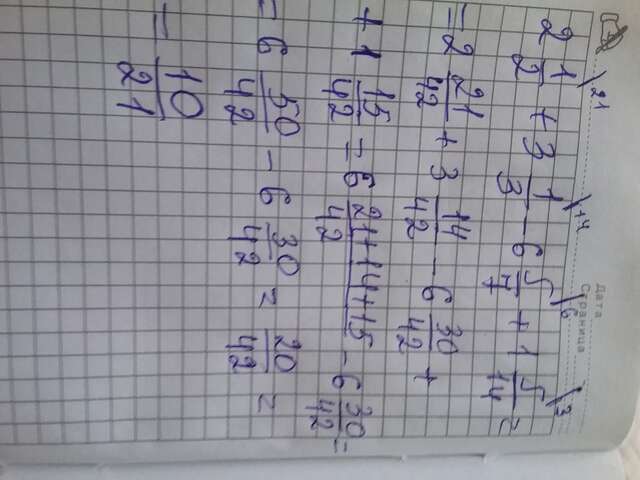 Дата
Страница
2 1/2 \21 + 3 1/3 \14 - 6 5/7 \6 + 1 5/14 \3 =
= 2 21/42 + 3 14/42 - 6 30/42 +
+ 1 15/42 = 6 21+14+15/42 - 6 30/42 =
= 6 50/42 - 6 30/42 = 20/42 =
= 10/21